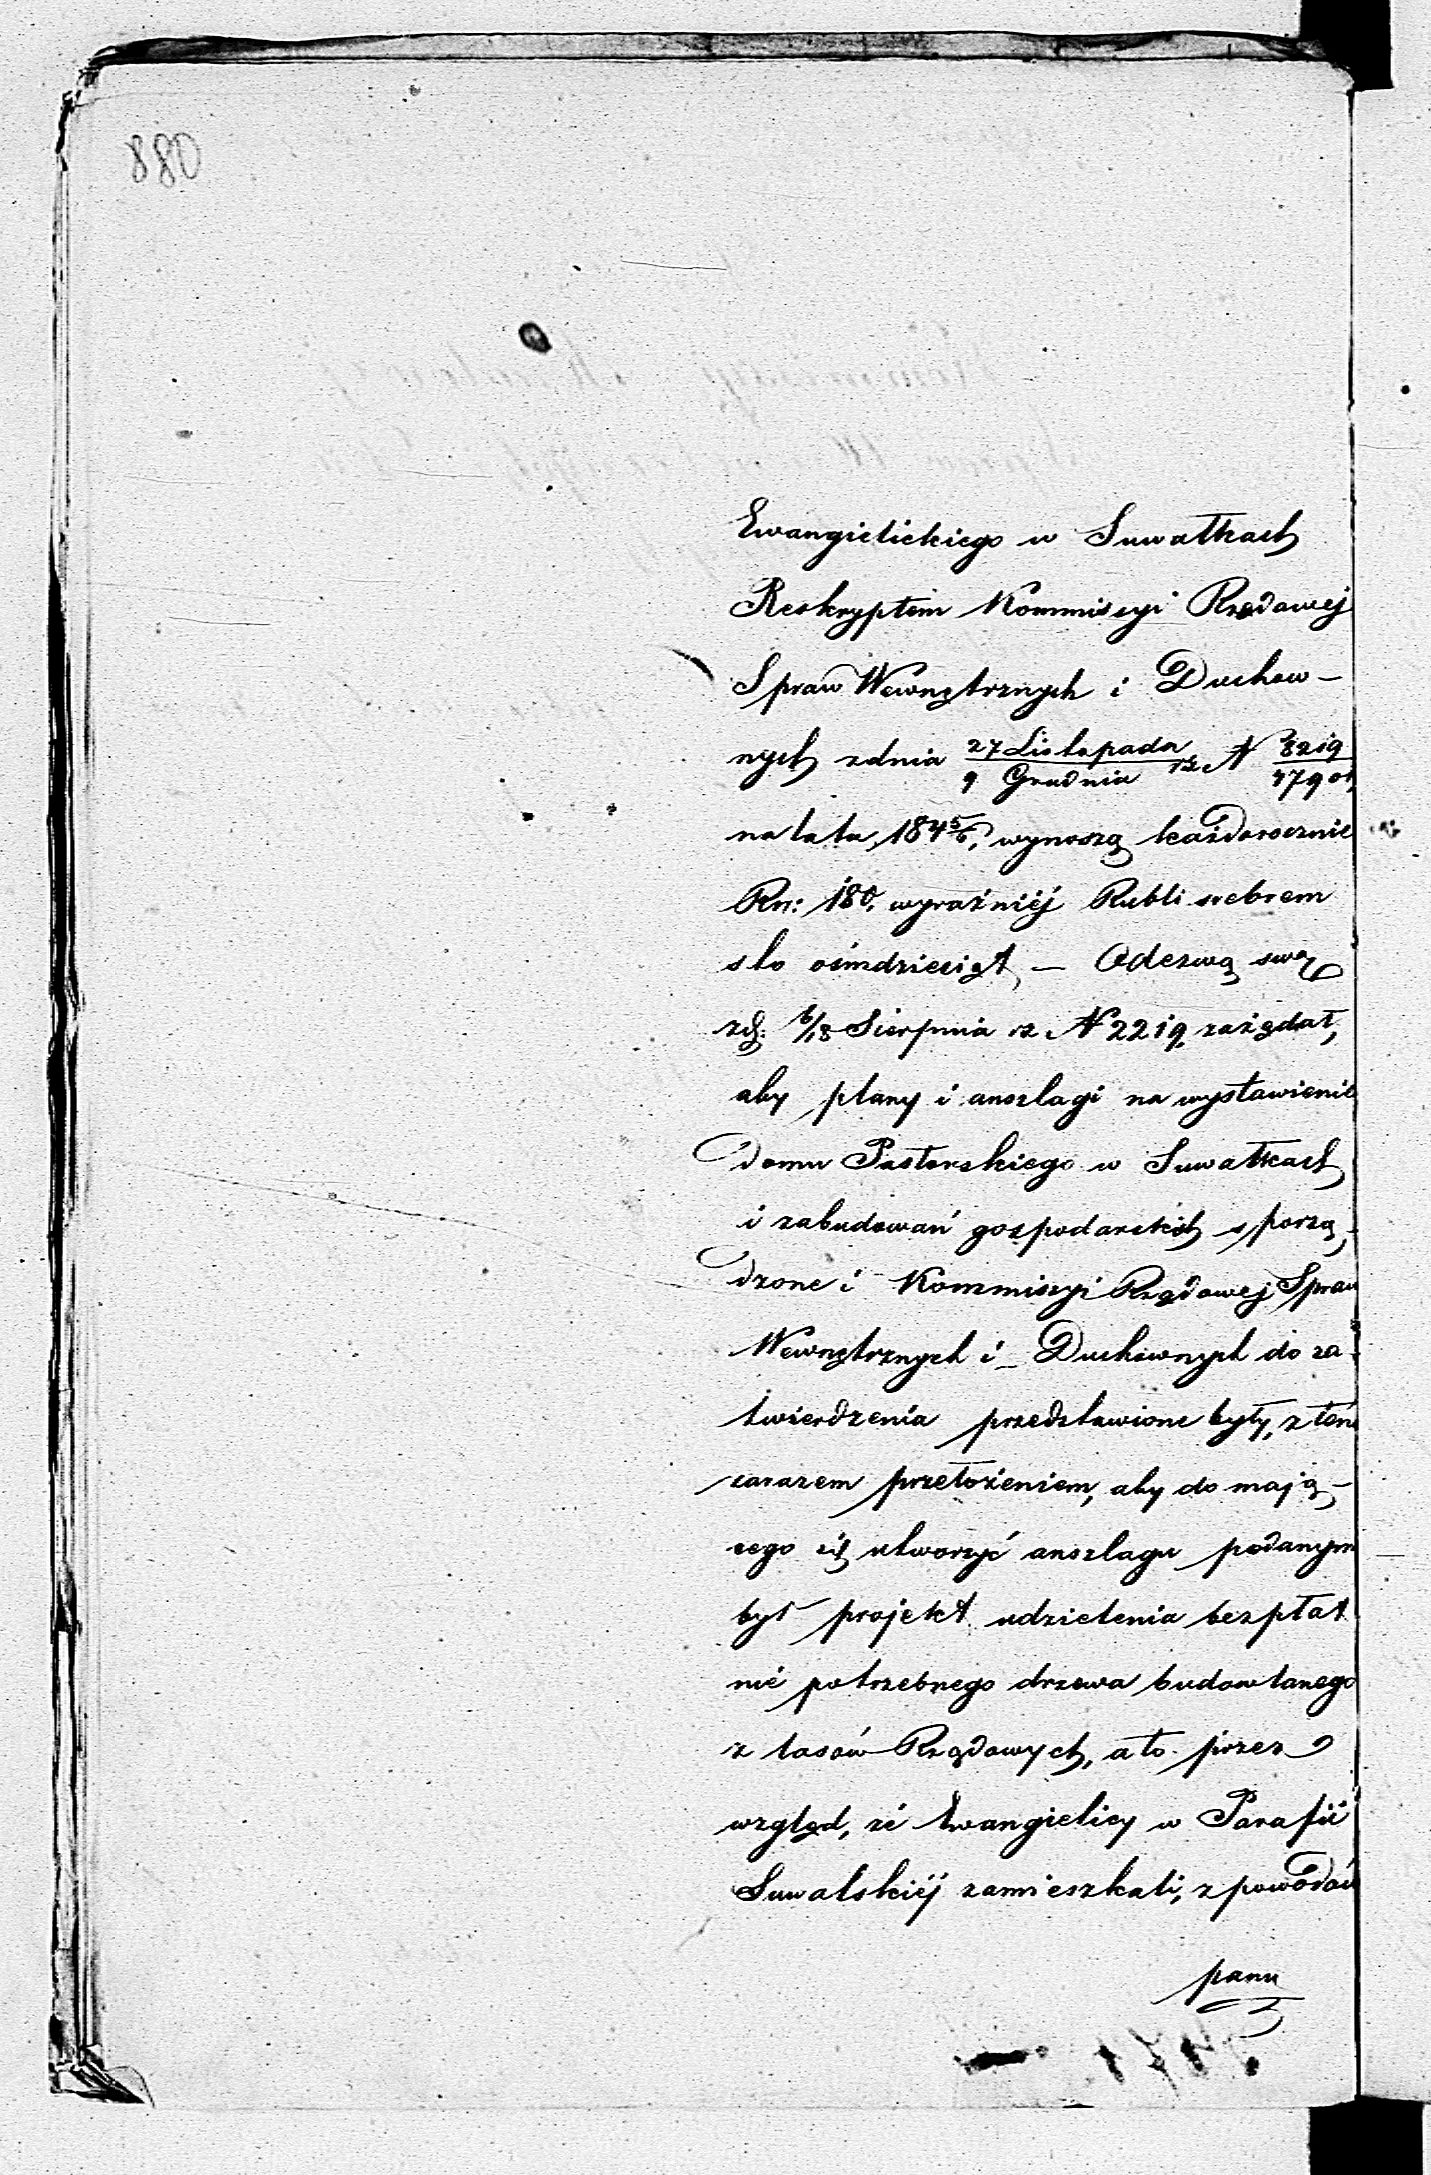 Ewangielickiego w Suwałkach
Reskryptem Kommissyi Rządowej
Spraw Wewnętrznych i Duchow-
nych z dnia 27 Listopada / 9 Grudnia rz N 8219 / 17901,
na lata 184 5/6, wynoszą każdorocznie
Rn: 180, wyraźniéj Rubli srebrem
sto ośmdziesiąt, — Odezwą swą
zd: 6/18 Sierpnia rz N 2219, zażądał,
aby plany i anszlagi na wystawienie
domu Pastorskiego w Suwałkach
i zabudowań gospodarskich sporzą-
dzone i Kommissyi Rządowej Spraw
Wewnętrznych i Duchownych do za-
twierdzenia przedstawione były, z tém
zarazem przełożeniem, aby do mają-
cego się utworzyć anszlagu podanym
był projekt udzielenia bezpłat
nie potrzebnego drzewa budowlanego
z lasów Rządowych, a to przez
wzgląd, że Ewangielicy w Parafii
Suwalskiéj zamieszkali, z powodów
panu